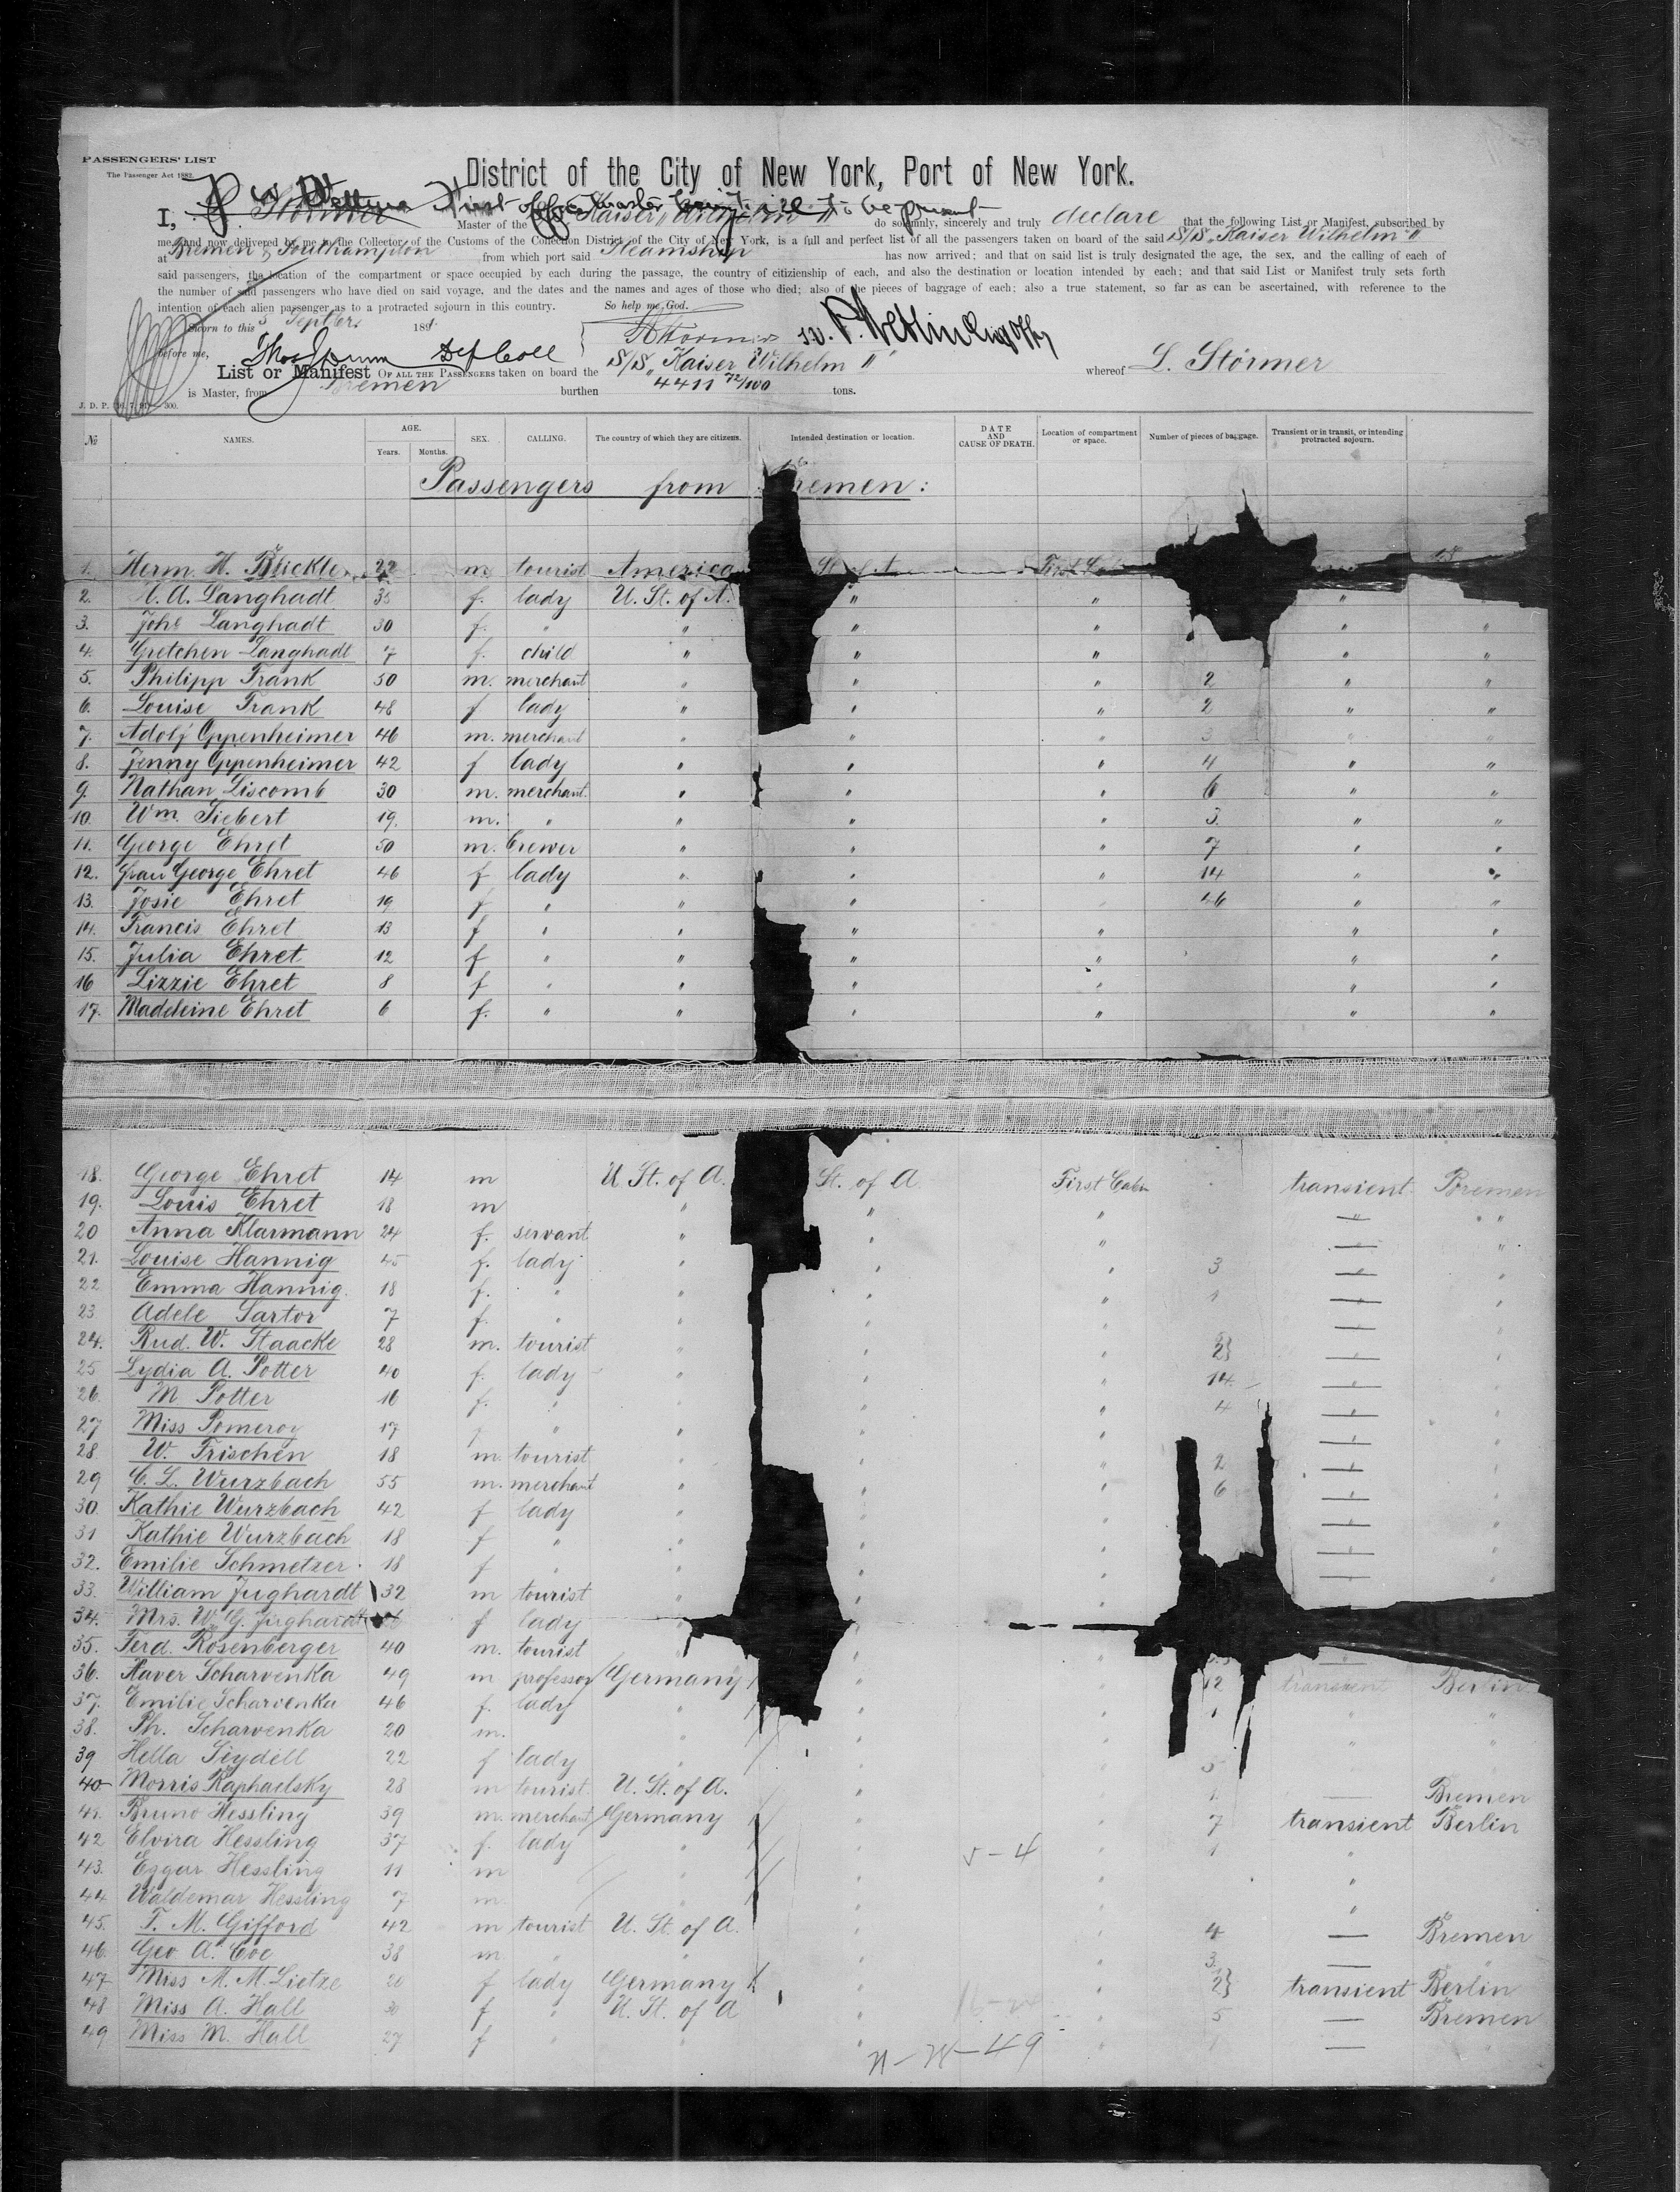 PASSENGERS' LIST
The Passenger Act 1882.
District of the City of New York, Port of New York.
First officer Master being ill to be present
I, L. Störmer Master of the Kaiser Wilhelm II do solemnly, sincerely and truly declare that the following List or Manifest, subscribed by
me, and now delivered by me to the Collector of the Customs of the Collection District of the City of New York, is a full and perfect list of all the passengers taken on board of the said S/S „Kaiser Wilhelm II"
at Bremen & Southampton from which port said Steamship has now arrived; and that on said list is truly designated the age, the sex, and the calling of each of
said passengers, the location of the compartment or space occupied by each during the passage, the country of citizienship of each, and also the destination or location intended by each; and that said List or Manifest truly sets forth
the number of said passengers who have died on said voyage, and the dates and the names and ages of those who died; also of the pieces of baggage of each; also a true statement, so far as can be ascertained, with reference to the
intention of each alien passenger as to a protracted sojourn in this country. So help me God.
Sworn to this 5 Septbr. 1891.
before me, Dep Coll
List or Manifest OF ALL THE PASSENGERS taken on board the S/S „Kaiser Wilhelm II" whereof L. Störmer
is Master, from Bremen burthen 4411 72/100 tons.
№ NAMES. AGE. Years. Months. SEX. CALLING. The country of which they are citizens. Intended destination or location. DATE AND CAUSE OF DEATH. Location of compartment or space. Number of pieces of baggage. Transient or in transit, or intending protracted sojourn.
Passengers from remen:
1. Herm. H. Blickle 22 m tourist America St. of A. First
2. A. A. Langhadt 35 f. lady U. St. of A. " " " "
3. Johs Langhadt 30 f. " " " " " "
4. Gretchen Langhadt 7 f. child " " " " "
5. Philipp Frank 50 m. merchant " " " 2 " "
6. Louise Frank 48 f lady " " " 2 " "
7. Adolf Oppenheimer 46 m. merchant " " " 3 " "
8. Jenny Oppenheimer 42 f lady " " " 4 " "
9. Nathan Liscomb 30 m. merchant. " " " 6 " "
10. Wm. Siebert 19. m. " " " " 3. " "
11. George Ehret 50 m. brewer " " " 7 " "
12. Frau George Ehret 46 f lady " " " 14 " "
13. Josie Ehret 19 f " " " " 46 " "
14. Francis Ehret 13 f " " " " " "
15. Julia Ehret 12 f " " " " " "
16 Lizzie Ehret 8 f " " " " " "
17. Madeleine Ehret 6 f. " " " " " "
18. George Ehret 14 m U St. of A. St. of A. First Cabn transient Bremen
19. Louis Ehret 18 m " " " " "
20 Anna Klarmann 24 f. servant " " " " "
21. Louise Hannig 45 f. lady " " " 3 " "
22 Emma Hannig. 18 f. " " " " 1 " "
23 Adele Sartor 7 f. " " " " " "
24. Rud. W. Staacke 28 m. tourist " " " 2} " "
25 Lydia A. Potter 40 f. lady " " " 14 " "
26. M Potter 16 f. " " " " 4 " "
27 Miss Pomeroy 17 f " " " " " "
28. W. Frischen 18 m. tourist " " " 2 " "
29 C. L. Wurzbach 55 m. merchant " " " 6 " "
30. Kathie Wurzbach 42 f lady " " " " "
31 Kathie Wurzbach 18 f " " " " " "
32. Emilie Schmetzer 18 f " " " " " "
33. William Jughardt 32 m tourist " " "
34. Mrs. W. G. Jughardt f lady " "
35. Ferd. Rosenberger 40 m. tourist " "
36. Xaver Scharvenka 49 m professor Germany " 12 transient Berlin
37. Emilie Scharvenka 46 f. lady " " " " " "
38. Ph. Scharvenka 20 m. " " " " "
39 Hella Seydell 22 f lady " " " 5 " "
40 Morris Raphaelsky 28 m tourist U. St. of A. " " 1. — Bremen
41. Bruno Hessling 39 m. merchant Germany " " 7 transient Berlin
42 Elvira Hessling 37 f. lady " " 5-4 " 1 "
43. Eggar Hessling 11 m " " " "
44 Waldemar Hessling 7 m. " " " "
45. T. M. Gifford 42 m tourist U. St. of A. " " 4 — Bremen
46. Geo. A. Coe 38 m " " " " 3. —
47 Miss M. M. Lietze 20 f lady Germany " " 2} transient Berlin
48 Miss A. Hall 30 f " U. St. of A " " 5 — Bremen
49 Miss M. Hall 27 f " " " " —